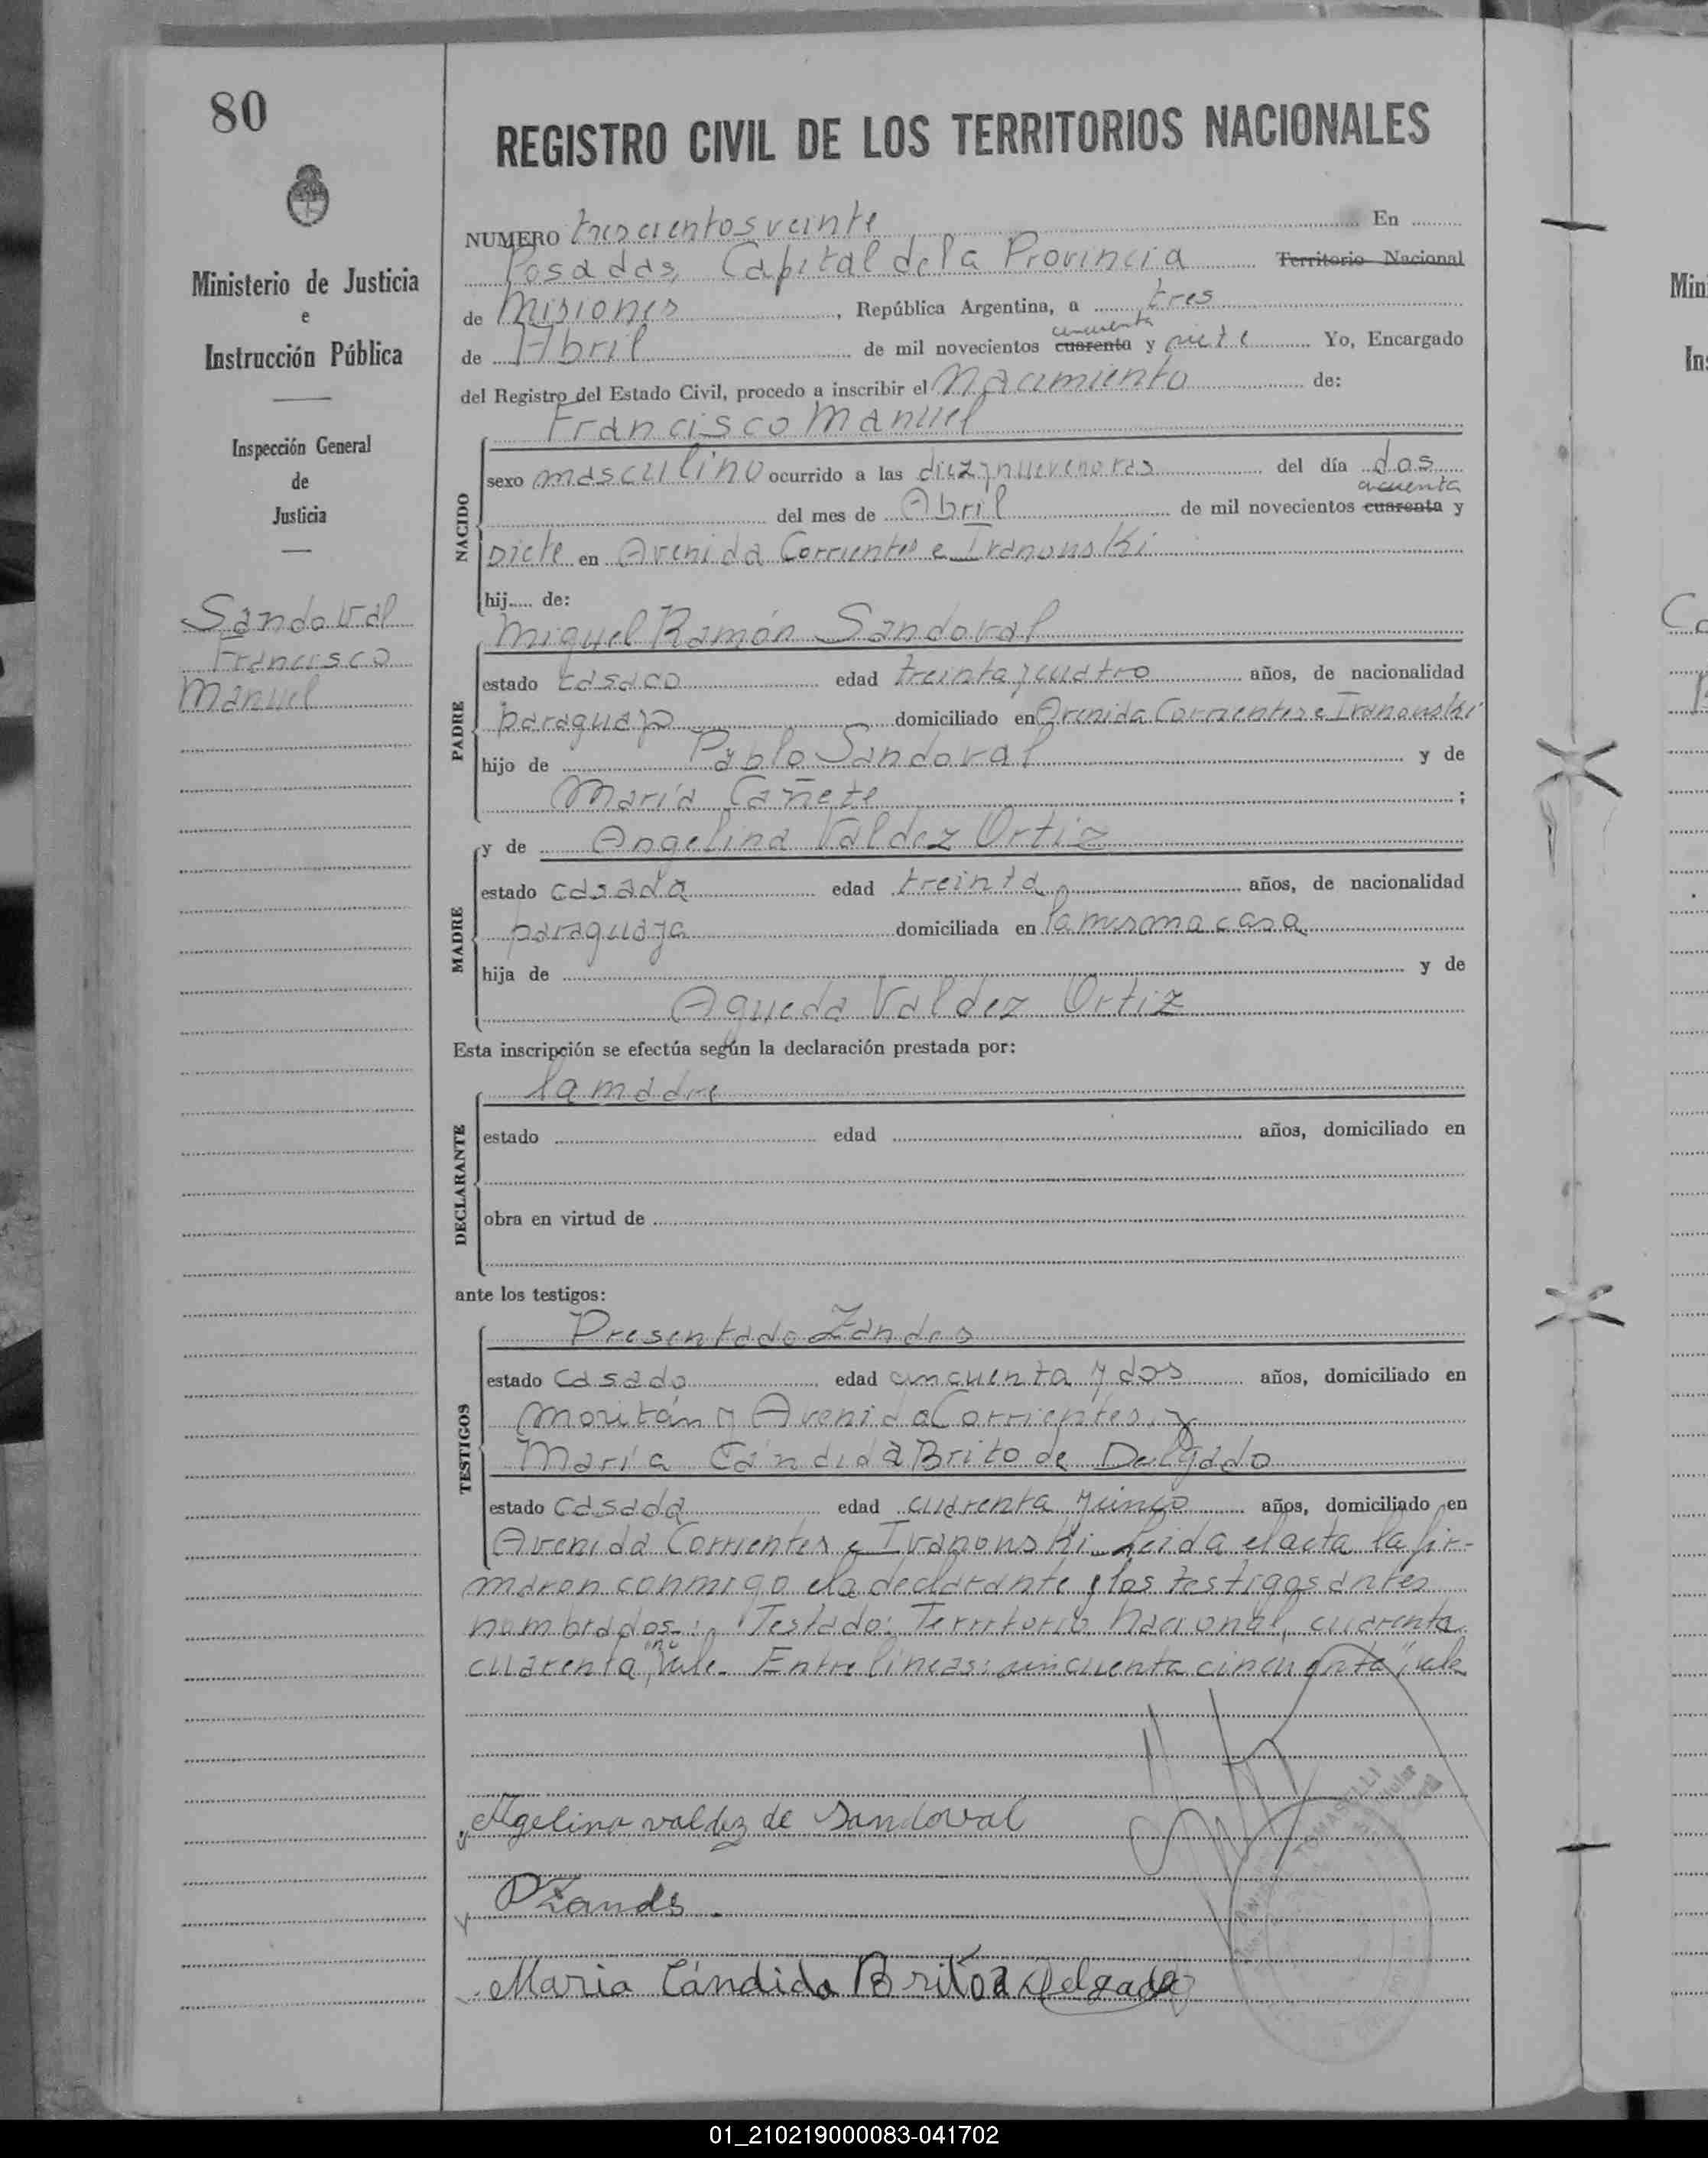 80
REGISTRO CIVIL DE LOS TERRITORIOS NACIONALES
Ministerio de Justicia
e
Instrucción Pública
Inspección General
de
Justicia
Sandoval
Francisco
Manuel
NUMERO trescientos veinte En
Posadas, Capital de la Provincia Territorio Nacional
de Misiones, República Argentina, a tres
cincuenta
de Abril de mil novecientos cuarenta y siete Yo, Encargado
del Registro del Estado Civil, procedo a inscribir el Nacimiento de:
Francisco Manuel
NACIDO
sexo masculino ocurrido a las diez y nueve horas del día dos
del mes de Abril de mil novecientos cuarenta y
siete en Avenida Corrientes e Ivanouski
hij de:
Miguel Ramón Sandoval
PADRE
estado casado edad treinta y cuatro años, de nacionalidad
paraguaya domiciliado en Avenida Corrientes e Ivanouski
hijo de Pablo Sandoval y de
María Cañete ;
y de Angelina Valdez Ortiz
MADRE
estado casada edad treinta años, de nacionalidad
paraguaya domiciliada en la misma casa
hija de y de
Agueda Valdez Ortiz
Esta inscripción se efectúa según la declaración prestada por:
la madre
DECLARANTE
estado edad años, domiciliado en
obra en virtud de
ante los testigos:
Presentado Zandes
TESTIGOS
estado casado edad cincuenta y dos años, domiciliado en
Moritán y Avenida Corrientes, y
María Cándida Brito de Delgado
estado casada edad cuarenta y cinco años, domiciliado en
Avenida Corrientes e Ivanouski. Leida el acta la fir-
maron conmigo la declarante y los testigos antes
nombrados: Testado: Territorio Nacional, cuarenta
cuarenta, "no" vale. Entre líneas: cincuenta cincuenta "vale
Agelina valdez de Sandoval
TOMASELLI
Titular
P Zands.
Maria Cándida Brito d Delgado
01_210219000083-041702